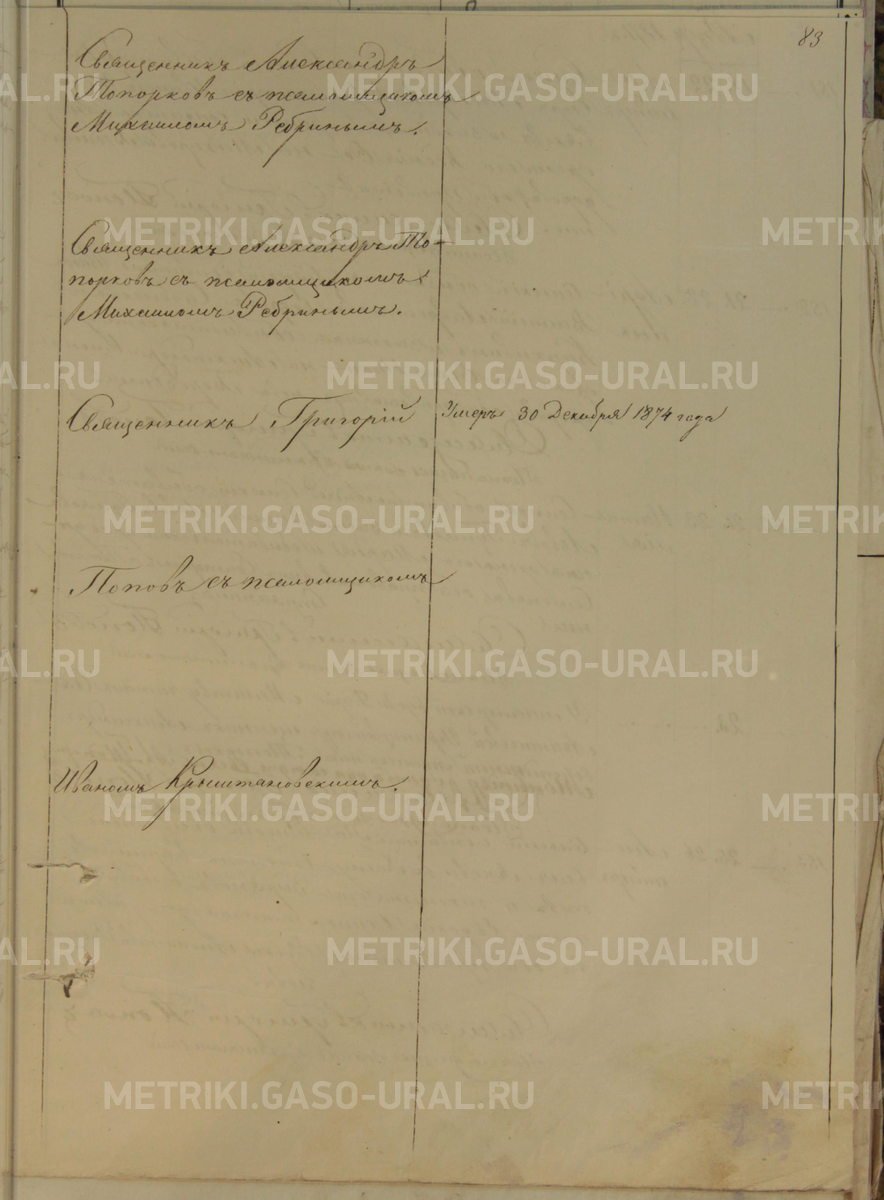 83
Священникъ Александръ
Топорковъ съ псаломщикомъ
Михаиломъ Ребринымъ.
Священникъ Александръ То-
порковъ съ псаломщикомъ
Михаиломъ Ребринымъ.
Священникъ Григорій
Умеръ 30 Декабря 1874 года
Поповъ съ псаломщикомъ
Иваномъ Крыштановскимъ.
METRIKI.GASO-URAL.RU